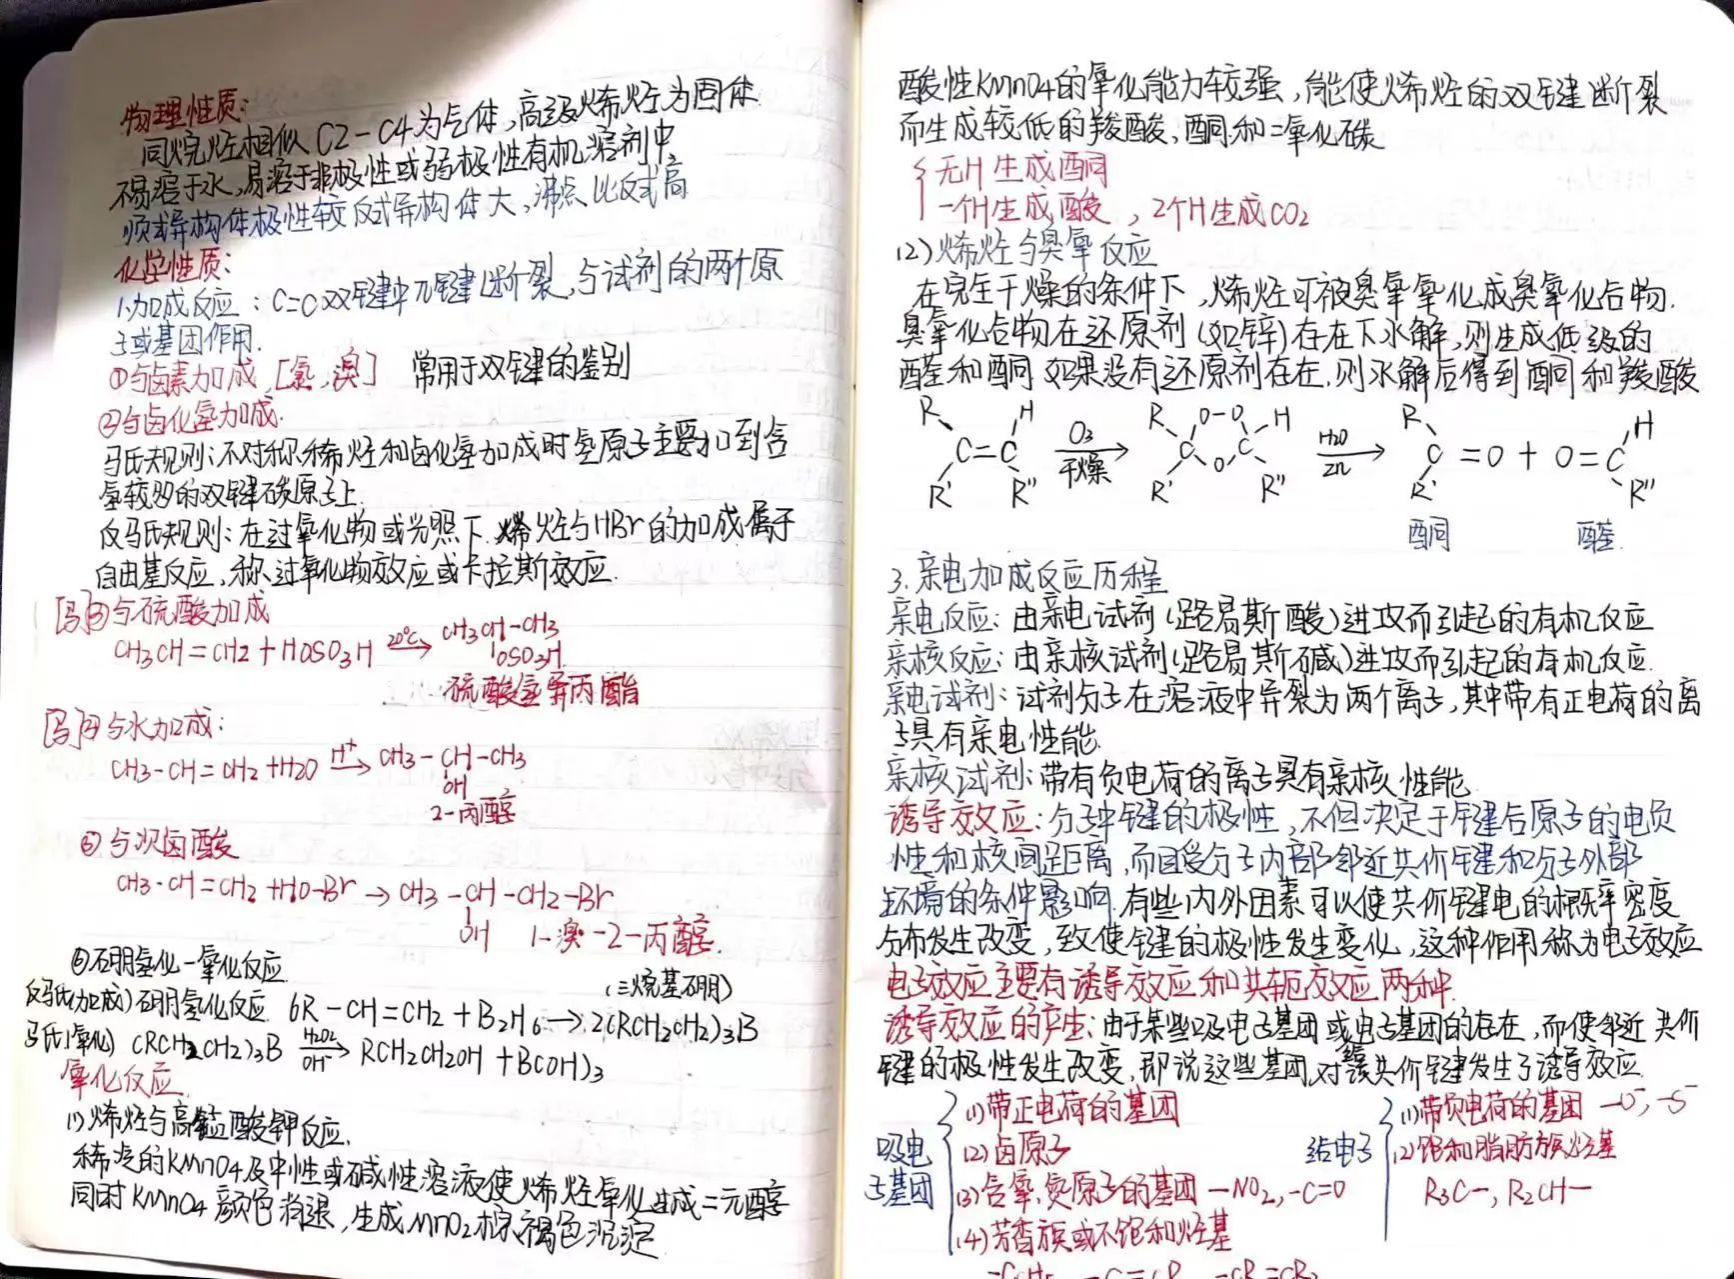 物理性质:
同烷烃相似 C2-C4为气体,高级烯烃为固体.
不易溶于水,易溶于非极性或弱极性有机溶剂中
顺式异构体极性较反式异构体大,沸点比反式高
化学性质:
1.加成反应:C=C双键中π键断裂,与试剂的两个原
子或基团作用.
①与卤素加成 [氯,溴] 常用于双键的鉴别
②与卤化氢加成.
马氏规则:不对称烯烃和卤化氢加成时氢原子主要加到含
氢较多的双键碳原子上.
反马氏规则:在过氧化物或光照下.烯烃与HBr的加成属于
自由基反应,称过氧化物效应或卡拉斯效应.
[马]③与硫酸加成
CH3CH=CH2+HOSO3H 20℃→ CH3CH-CH3
OSO3H
硫酸氢异丙酯
[马]④与水加成:
CH3-CH=CH2+H2O H+→ CH3-CH-CH3
OH
2-丙醇
⑤与次卤酸
CH3-CH=CH2+HO-Br→CH3-CH-CH2-Br
OH 1-溴-2-丙醇.
⑥硼氢化-氧化反应
(三烷基硼)
反马氏(加成)硼氢化反应 6R-CH=CH2+B2H6→2(RCH2CH2)3B
马氏(氧化) (RCH2CH2)3B H2O2→ RCH2CH2OH+B(OH)3
OH-
氧化反应
(1)烯烃与高锰酸钾反应.
稀冷的KMnO4及中性或碱性溶液使烯烃氧化生成二元醇
同时KMnO4颜色消退,生成MnO2棕褐色沉淀
酸性KMnO4的氧化能力较强,能使烯烃的双键断裂
而生成较低的羧酸,酮和二氧化碳
无H生成酮
一个H生成酸,2个H生成CO2
(2)烯烃与臭氧反应
在完全干燥的条件下,烯烃可被臭氧氧化成臭氧化合物.
臭氧化合物在还原剂(如锌)存在下水解,则生成低级的
醛和酮 如果没有还原剂存在,则水解后得到酮和羧酸
R H R O-O H R H
C=C O3→ C C H2O→ C=O+O=C
干燥 O Zn
R' R'' R' R'' R' R''
酮 醛
3.亲电加成反应历程
亲电反应:由亲电试剂(路易斯酸)进攻而引起的有机反应
亲核反应:由亲核试剂(路易斯碱)进攻而引起的有机反应.
亲电试剂:试剂分子在溶液中异裂为两个离子,其中带有正电荷的离
子具有亲电性能.
亲核试剂:带有负电荷的离子具有亲核性能
诱导效应:分子中键的极性,不但决定于键合原子的电负
性和核间距离,而且受分子内部邻近共价键和分子外部
环境的条件影响.有些内外因素可以使共价键电的概率密度
分布发生改变,致使键的极性发生变化,这种作用称为电子效应
电子效应主要有诱导效应和共轭效应两种.
诱导效应的产生:由于某些吸电子基团或电子基团的存在,而使邻近共价
键的极性发生改变,即说这些基团对该共价键发生了诱导效应
吸电子基团
(1)带正电荷的基团
(2)卤原子
(3)含氧,氮原子的基团-NO2,-C=O
(4)芳香族或不饱和烃基
给电子
(1)带负电荷的基团 -O-,-S-
(2)饱和脂肪族烃基
R3C-,R2CH-